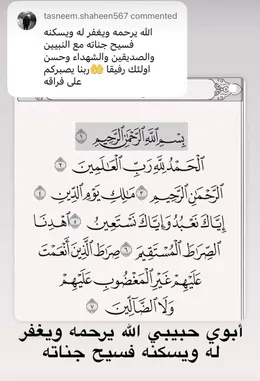 tasneem.shaheen567 commented
الله يرحمه ويغفر له ويسكنه
فسيح جناته مع النبيين
والصديقين والشهداء وحسن
اولئك رفيقا 🤲ربنا يصبركم
على فراقه
بِسْمِ اللَّهِ الرَّحْمَٰنِ الرَّحِيمِ
الْحَمْدُ لِلَّهِ رَبِّ الْعَالَمِينَ ٢
الرَّحْمَٰنِ الرَّحِيمِ ٣ مَالِكِ يَوْمِ الدِّينِ ٤
إِيَّاكَ نَعْبُدُ وَإِيَّاكَ نَسْتَعِينُ ٥ اهْدِنَا
الصِّرَاطَ الْمُسْتَقِيمَ ٦ صِرَاطَ الَّذِينَ أَنْعَمْتَ
عَلَيْهِمْ غَيْرِ الْمَغْضُوبِ عَلَيْهِمْ
وَلَا الضَّالِّينَ ٧
أبوي حبيبي الله يرحمه ويغفر
له ويسكنه فسيح جناته